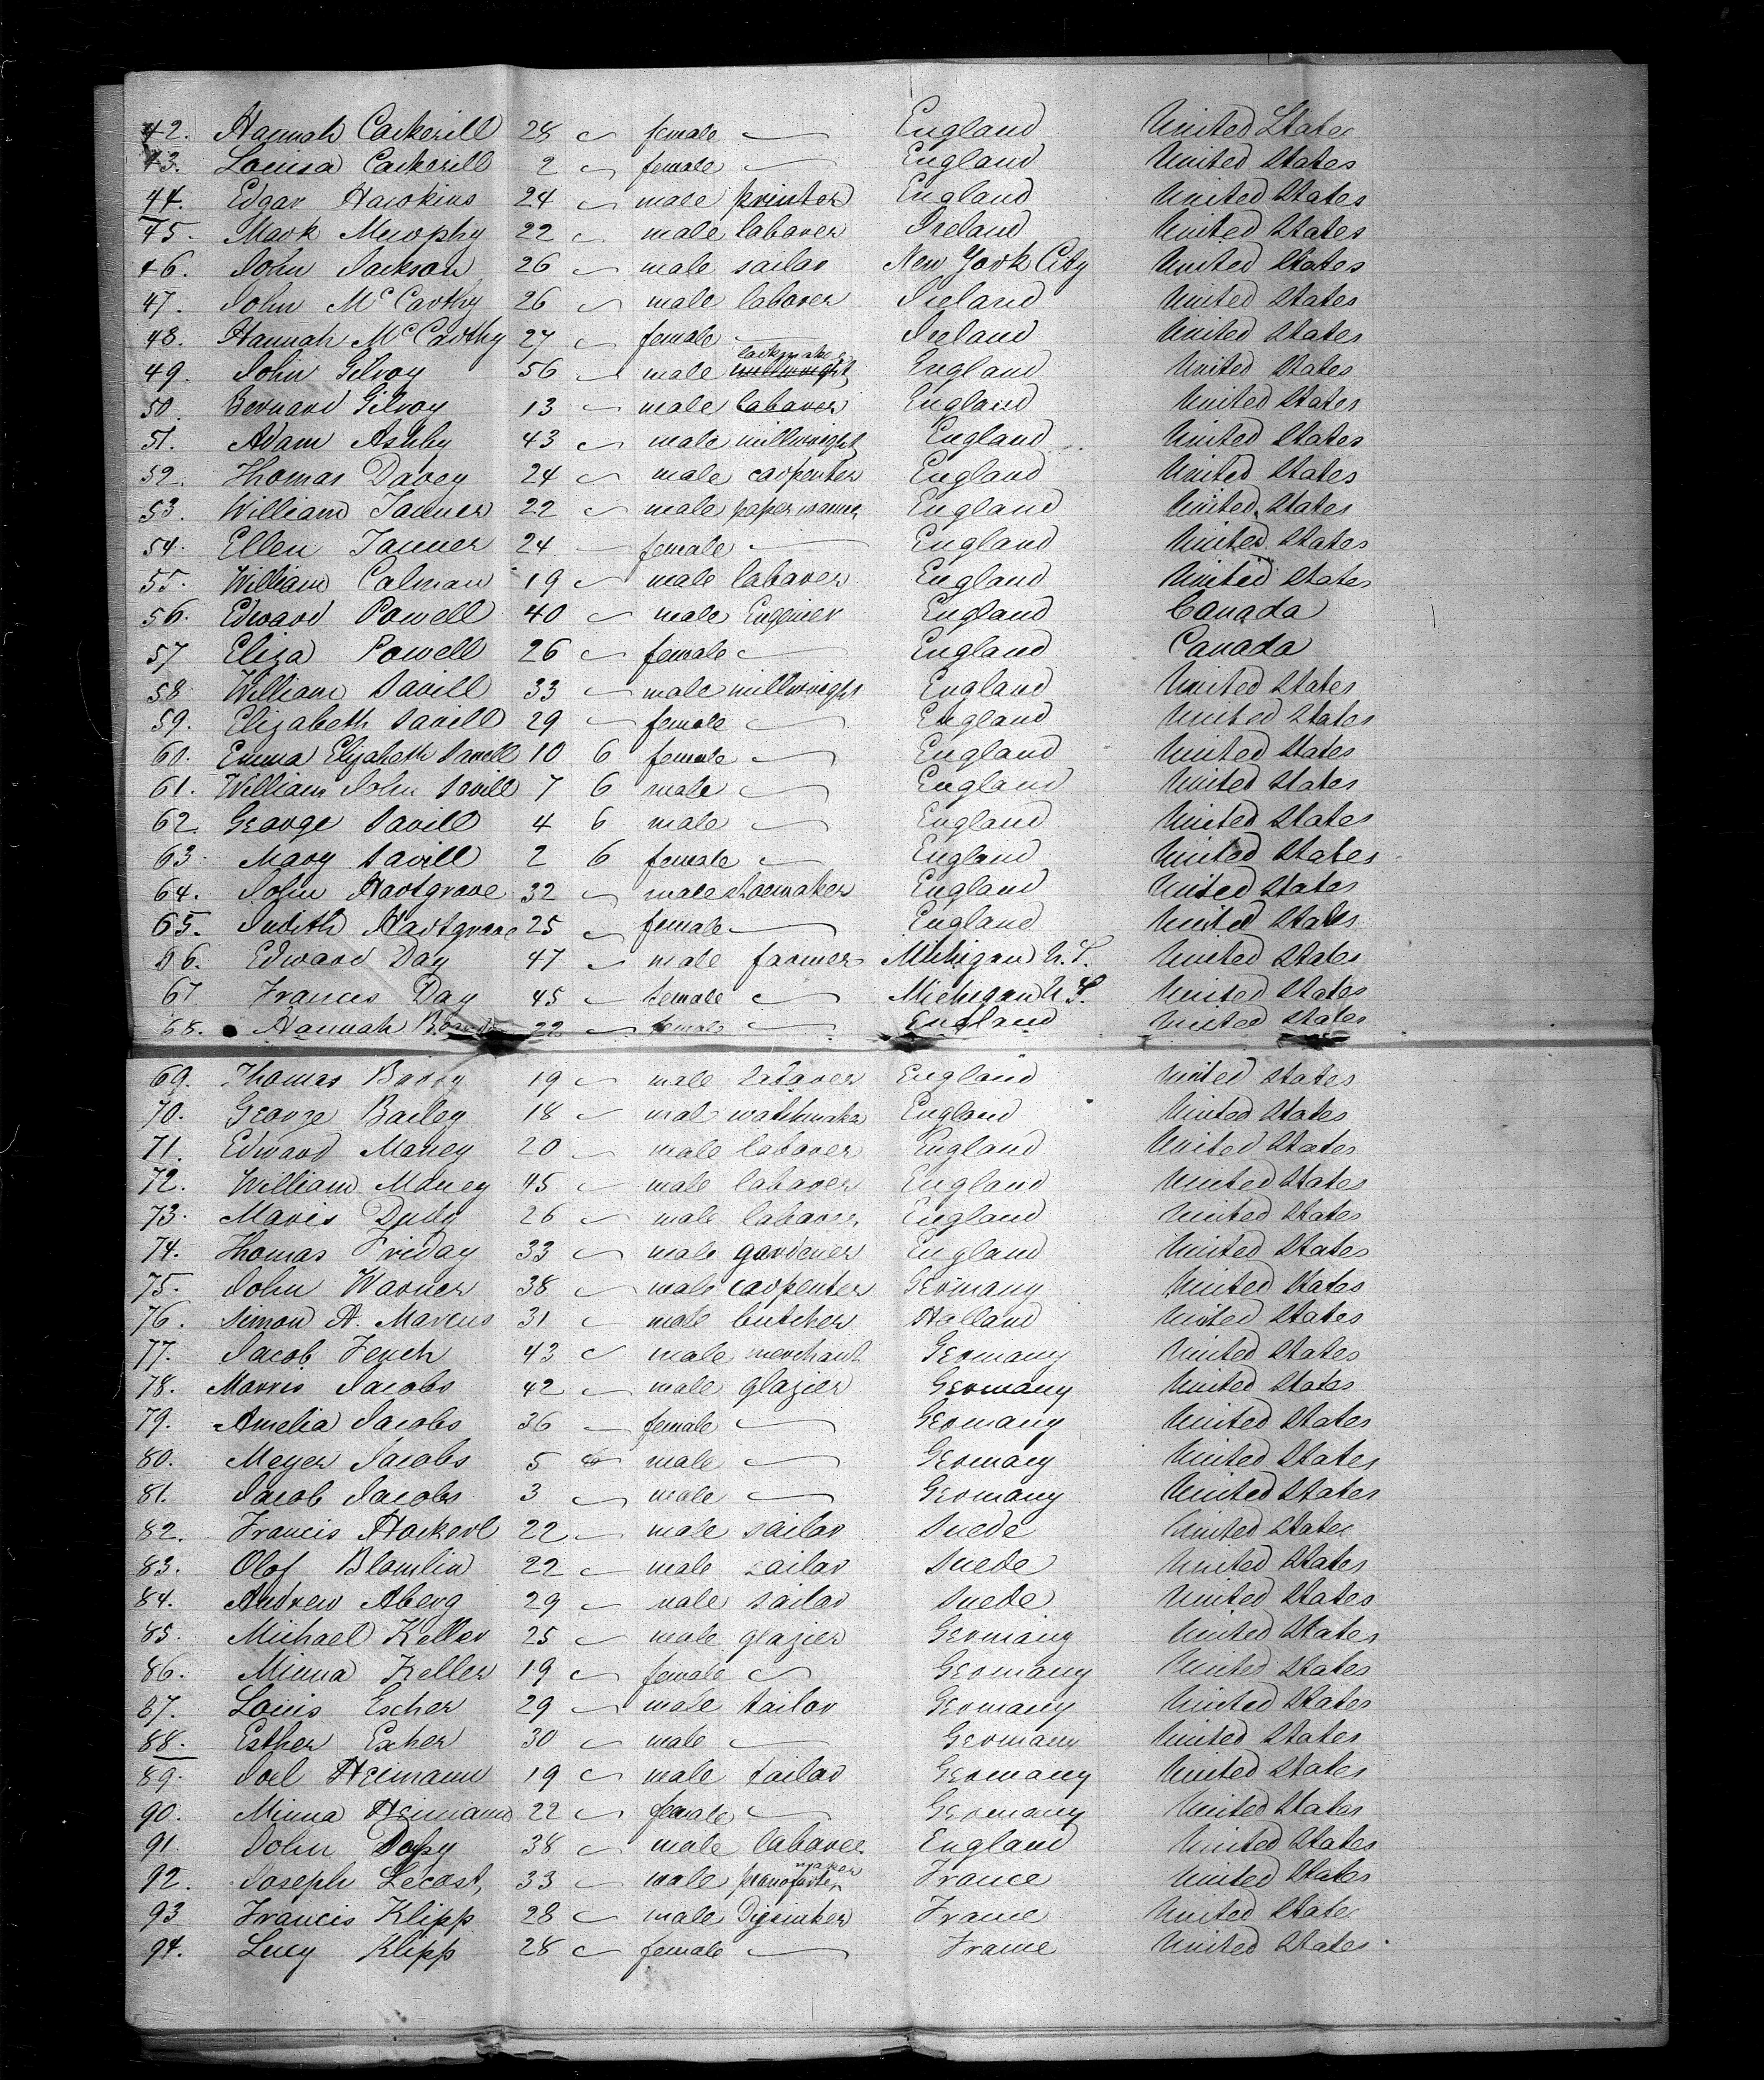 42. Hannah Cackerill 28 female England United States
43. Louisa Cackerill 2 female England United States
44. Edgar Hawkins 24 male printer England United States
45. Mark Murphy 22 male laborer Ireland United States
46. John Jackson 26 male sailor New York City United States
47. John McCarthy 26 male laborer Ireland United States
48. Hannah McCarthy 27 female Ireland United States
49. John Gilroy 56 male England United States
50. Bernard Gilroy 13 male laborer England United States
51. Adam Ashby 43 male millwright England United States
52. Thomas Davey 24 male carpenter England United States
53. William Tanner 22 male paper England United States
54. Ellen Tanner 24 female England United States
55. William Calman 19 male laborer England United States
56. Edward Powell 40 male Engeneer England Canada
57 Eliza Powell 26 female England Canada
58 William Savill 33 male millwright England United States
59. Elizabeth Savill 29 female England United States
60. Emma Elizabeth Savill 10 6 female England United States
61. William John Savill 7 6 male England United States
62. George Savill 4 6 male England United States
63. Mary Savill 2 6 female England United States
64. John Hartgrove 32 male shoemaker England United States
65. Judith Hartgrove 25 female England United States
66. Edward Day 47 male farmer Michigan U.S. United States
67 Frances Day 45 female Michigan U.S. United States
68. Hannah 22 female England United States
69. Thomas Barry 19 male laborer England United States
70. George Bailey 18 male watchmaker England United States
71. Edward Maney 20 male laborer England United States
72. William Maney 45 male laborer England United States
73. Maris Dudy 26 male laborer England United States
74. Thomas Friday 33 male gardener England United States
75. John Warner 38 male carpenter Germany United States
76. Simon A. Marcus 31 male butcher Holland United States
77. Jacob Fench 43 male merchant Germany United States
78. Morris Jacobs 42 male glazier Germany United States
79. Amelia Jacobs 36 female Germany United States
80. Meyer Jacobs 5 male Germany United States
81. Jacob Jacobs 3 male Germany United States
82. Francis Hockerl 22 male sailor Suede United States
83. Olof Blomlin 22 male sailor Suede United States
84. Andrew Aberg 29 male sailor Suede United States
85. Michael Keller 25 male glazier Germany United States
86. Minna Keller 19 female Germany United States
87. Louis Escher 29 male tailor Germany United States
88. Esther Escher 30 male Germany United States
89. Joel Heimann 19 male tailor Germany United States
90. Minna Heimann 22 female Germany United States
91. John 38 male laborer England United States
maker
92. Joseph Lecost 33 male pianoforte France United States
93 Francis Klipp 28 male France United State
94. Lucy Klipp 28 female France United States